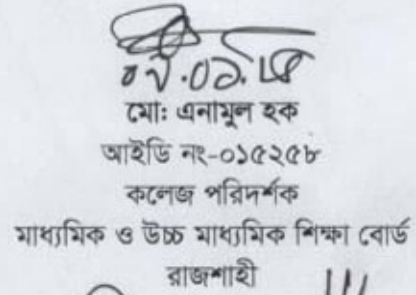 মো: এনামুল হক
আইডি নং-০১৫২৫৮
কলেজ পরিদর্শক
মাধ্যমিক ও উচ্চ মাধ্যমিক শিক্ষা বোর্ড
রাজশাহী